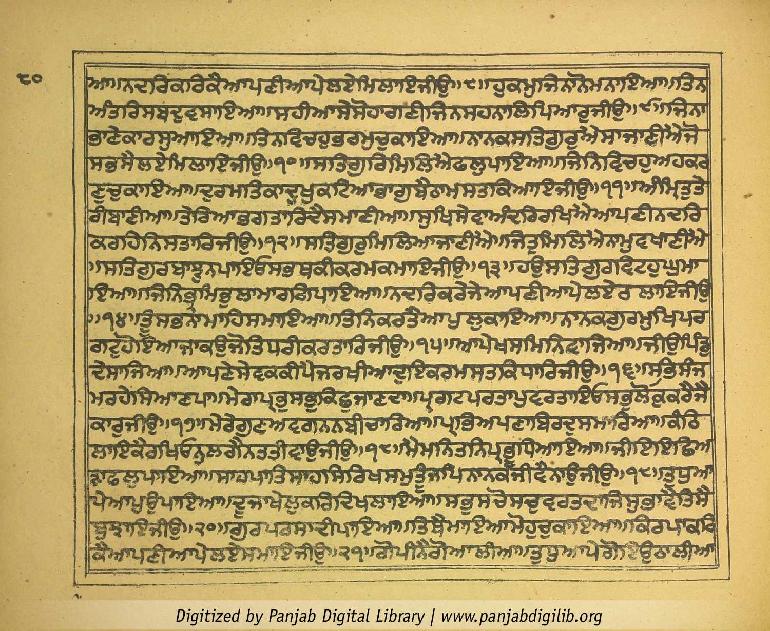 ੮੦
ਆ॥ਨਦਰਿਕਰਿਕੈਆਪਣੀਆਪੇਲਏਮਿਲਾਇਜੀਉ॥੮॥ਹੁਕਮੁਜਿਨਾਨੋਮਨਾਇਆ॥ਤਿਨ
ਅੰਤਰਿਸਬਦੁਵਸਾਇਆ॥ਸਹੀਆਸੇਸੋਹਾਗਣੀਜਿਨਸਹਨਾਲਿਪਿਆਰੁਜੀਉ॥੯॥ਜਿਨਾ
ਭਾਣੇਕਾਰਸੁਆਇਆ॥ਤਿਨਵਿਚਹੁਭਰਮੁਚੁਕਾਇਆ॥ਨਾਨਕਸਤਿਗੁਰੁਐਸਾਜਾਣੀਐਜੋ
ਸਭਸੈਲਏਮਿਲਾਇਜੀਉ॥੧੦॥ਸਤਿਗੁਰਿਮਿਲਿਐਫਲੁਪਾਇਆ॥ਜਿਨਿਵਿਚਹੁਅਹਕਰ
ਣੁਚੁਕਾਇਆ॥ਦੁਰਮਤਿਕਾਦੁਖੁਕਟਿਆਭਾਗੁਬੈਠਾਮਸਤਕਿਆਇਜੀਉ॥੧੧॥ਅੰਮ੍ਰਿਤੁਤੇ
ਰੀਬਾਣੀਆ॥ਤੇਰਿਆਭਗਤਾਰਿਦੈਸਮਾਣੀਆ॥ਸੁਖਿਸੇਵਾਅੰਦਰਿਰਖਿਐਆਪਣੀਨਦਰਿ
ਕਰਹਿਨਿਸਤਾਰਿਜੀਉ॥੧੨॥ਸਤਿਗੁਰੁਮਿਲਿਆਜਾਣੀਐ॥ਜਿਤੁਮਿਲਿਐਨਾਮੁਵਖਾਣੀਐ
॥ਸਤਿਗੁਰਬਾਝੁਨਪਾਇਓਸਭਥਕੀਕਰਮਕਮਾਇਜੀਉ॥੧੩॥ਹਉਸਤਿਗੁਰਵਿਟਹੁਘੁਮਾ
ਇਆ॥ਜਿਨਿਭ੍ਰਮਿਭੁਲਾਮਾਰਗਿਪਾਇਆ॥ਨਦਰਿਕਰੇਜੇਆਪਣੀਆਪੇਲਏਰਲਾਇਜੀਉ
॥੧੪॥ਤੂੰਸਭਨਾਮਾਹਿਸਮਾਇਆ॥ਤਿਨਿਕਰਤੈਆਪੁਲੁਕਾਇਆ॥ਨਾਨਕਗੁਰਮੁਖਿਪਰ
ਗਟੁਹੋਇਆਜਾਕਉਜੋਤਿਧਰੀਕਰਤਾਰਿਜੀਉ॥੧੫॥ਆਪੇਖਸਮਿਨਿਵਾਜਿਆ॥ਜੀਉਪਿੰਡੁ
ਦੇਸਾਜਿਆ॥ਆਪਣੇਸੇਵਕਕੀਪੈਜਰਖੀਆਦੁਇਕਰਮਸਤਕਿਧਾਰਿਜੀਉ॥੧੬॥ਸਭਿਸੰਜ
ਮਰਹੇਸਿਆਣਪਾ॥ਮੇਰਾਪ੍ਰਭੁਸਭੁਕਿਛੁਜਾਣਦਾ॥ਪ੍ਰਗਟਪਰਤਾਪੁਵਰਤਾਇਓਸਭੁਲੋਕੁਕਰੈਜੈ
ਕਾਰੁਜੀਉ॥੧੭॥ਮੇਰੇਗੁਣਅਵਗਨਨਬੀਚਾਰਿਆ॥ਪ੍ਰਭਿਅਪਣਾਬਿਰਦੁਸਮਾਰਿਆ॥ਕੰਠਿ
ਲਾਇਕੈਰਖਿਓਨੁਲਗੈਨਤਤੀਵਾਉਜੀਉ॥੧੮॥ਮੈਮਨਿਤਨਿਪ੍ਰਭੂਧਿਆਇਆ॥ਜੀਇਇਛਿਅ
ੜਾਫਲੁਪਾਇਆ॥ਸਾਹਪਾਤਿਸਾਹਸਿਰਿਖਸਮੁਤੂੰਜਪਿਨਾਨਕਜੀਵੈਨਾਉਜੀਉ॥੧੯॥ਤੁਧੁਆ
ਪੇਆਪੁਉਪਾਇਆ॥ਦੂਜਾਖੇਲੁਕਰਿਦਿਖਲਾਇਆ॥ਸਭੁਸਚੋਸਚੁਵਰਤਦਾਜਿਸੁਭਾਵੈਤਿਸੈ
ਬੁਝਾਇਜੀਉ॥੨੦॥ਗੁਰਪਰਸਾਦੀਪਾਇਆ॥ਤਿਥੈਮਾਇਆਮੋਹੁਚੁਕਾਇਆ॥ਕਿਰਪਾਕਰਿ
ਕੈਆਪਣੀਆਪੇਲਏਸਮਾਇਜੀਉ॥੨੧॥ਗੋਪੀਨੈਗੋਆਲੀਆ॥ਤੁਧੁਆਪੇਗੋਇਉਠਾਲੀਆ
Digitized by Panjab Digital Library | www.panjabdigilib.org